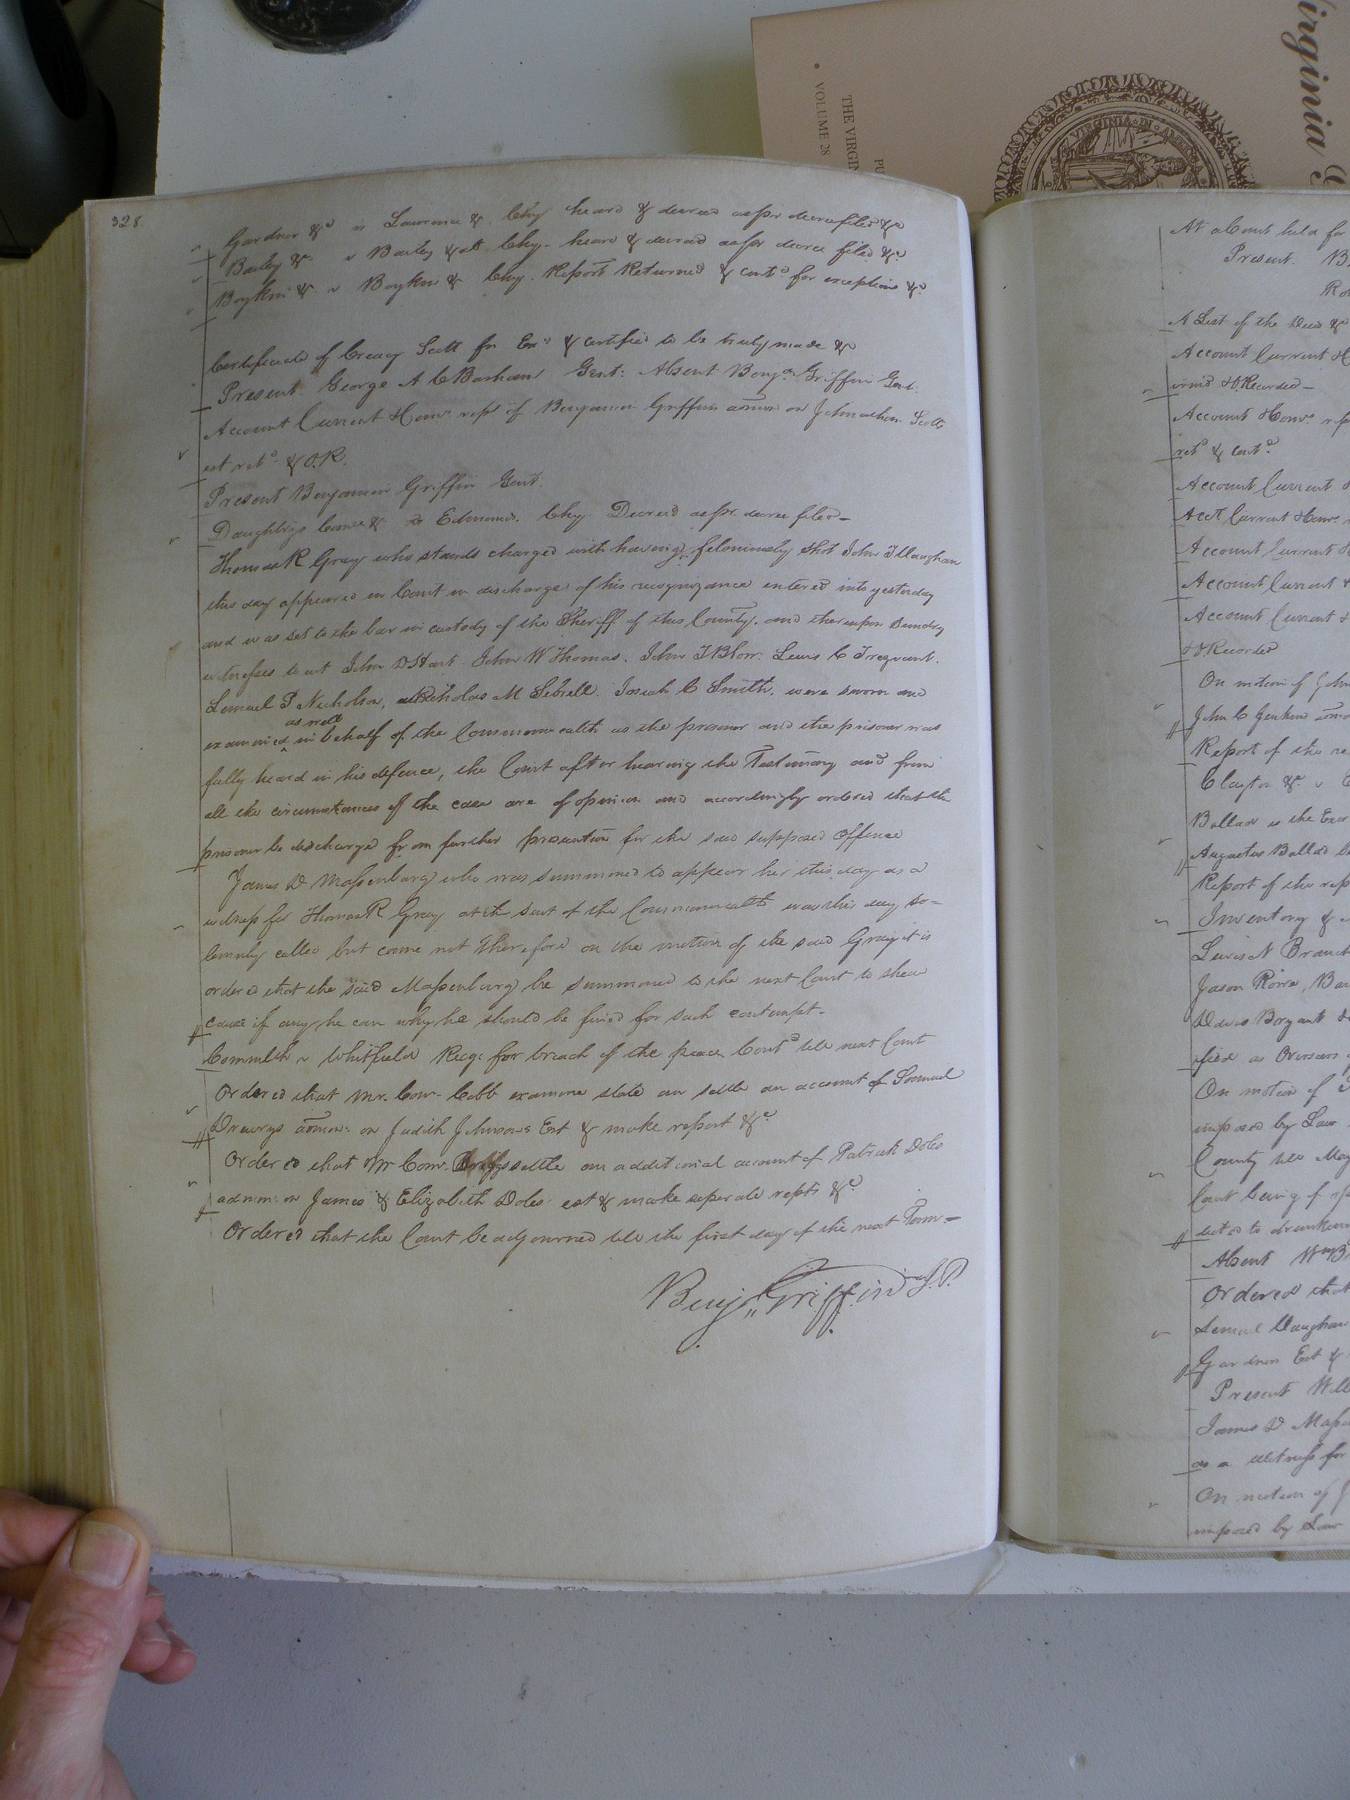 328
Gardner &c vs Lawrence &c Chy heard & decreed as pr decree filed &c
Bailey &c v Bailey & als Chy. heard & decreed as pr decree filed &c
Boykin &c v Boykin &c Chy. Report Returned & contd for exceptions &c
Certificate of Creacy Scott for & certified to be truly made &c
Present George A C Barham Gent: Absent Benja Griffin Gent.
Account Current & Comrs rept of Benjamin Griffin admr on Johnathan Scotts
est retd & O.R.
Present Benjamin Griffin Gent.
Daughtrys &c vs Edmunds. Chy Decreed as pr. decree filed—
Thomas R Gray who stands charged with having feloniously shot John T Vaughan
this day appeared in Court in discharge of his recognizance entered into yesterday
and was set to the bar in custody of the Sheriff of this County. and thereupon Sundry
witnesses to wit John D Hart John W Thomas. John T Blow. Lewis C Trezvant.
Lemuel P Nicholson, Nicholas M Sebrell. Josiah C Smith. were sworn and
as well
examined in behalf of the Commonwealth as the prisoner and the prisoner was
fully heard in his defence, the Court after hearing the Testimony and from
all the circumstances of the case are of opinion and accordingly ordered that the
prisoner be discharged from further prosecution for the said supposed offence
James D Massenburg who was summoned to appear her this day as a
witness for Thomas R Gray at the suit of the Commonwealth was this day so-
lemnly called but came not Therefore on the motion of the said Gray it is
ordered that the said Massenburg be summoned to the next Court to shew
cause if any he can why he should be fined for such contempt.
Commlth v Whitfield Recg: for breach of the peace Contd till next Court
Ordered that Mr. Com. Cobb examine state an settle an account of Samuel
Drewrys admr: on Judith Johnsons Est & make report &c
Ordered that Mr Com. settle an additional account of Patrick Doles
admr: on James & Elizabeth Doles est & make seperate repts &c
Ordered that the Court be adjourned till the first day of the next Term—
Benj: Griffin J.P.
At a Court held for
Present. B
Ro
A List of the Deed &
Account Current &
Recorded—
Account & Comrs
retd & contd
Account Current &
Acct Current & Comrs
Account Current &
Account Current &
Account Current &
& Recorded
On motion of John
John C Jenkins
Report of the
Clayton &c v
Ballard is the Exor
Augustus Ballard
Report of the rep
Inventory &
Lewis N Branch
Jason Rowe, Bar
Davis Bryant
fied as Overseers
On motion of
imposed by Law
County till May
Court being of
Absent Wm B
Ordered that
Lemuel Vaughan
Gardner Est &
Present Will
James D Massen
as a witness for
On motion of J
imposed by Law
Virginia
THE VIRGIN
VOLUME 28
PU
VIRGINIA IN